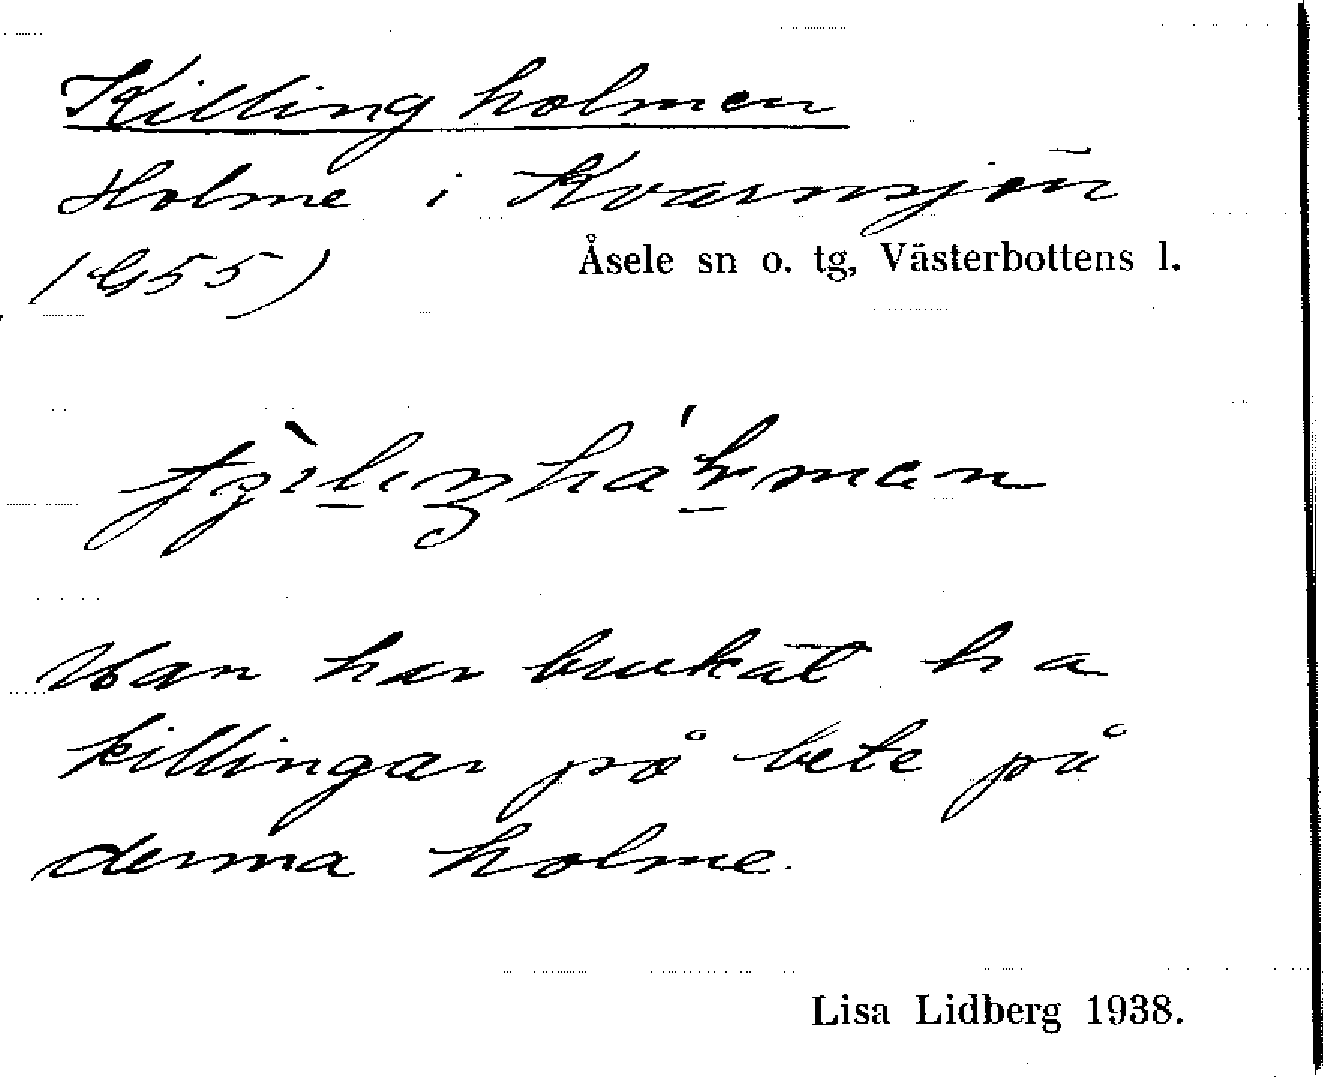 Killingholmen
Holme i Kvarnsjön
(G55)
Åsele sn o. tg, Västerbottens l.
Man har brukat ha
killingar på bete på
denna holme.
Lisa Lidberg 1938.